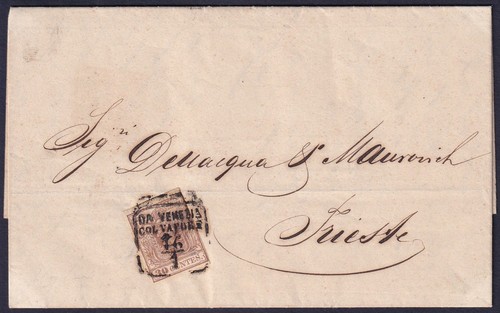 Sigri Dellacqua & Maurovich
Trieste
DA VENEZIA
COL VAPORE
1
30 CENTES.